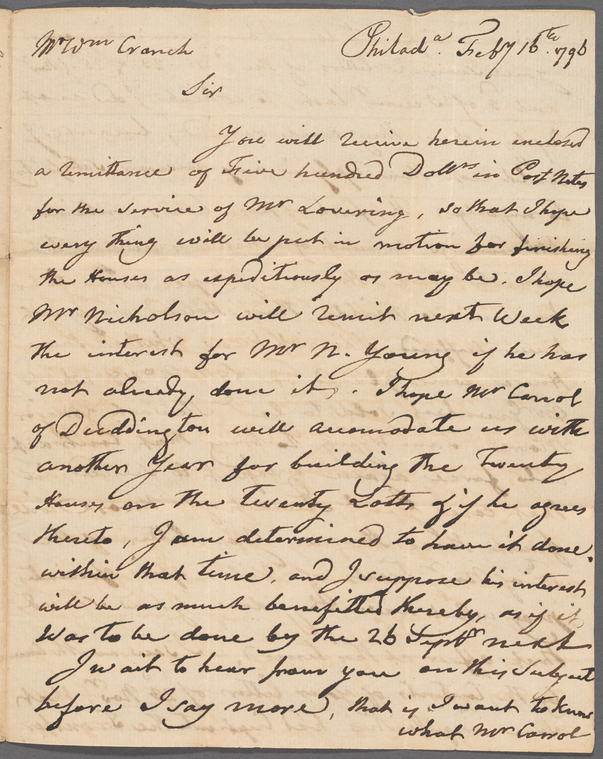 Mr Wm Cranch
Philada. Feby 16th 1796
Sir
You will receive herein enclosed
a remittance of Five hundred Dollrs in Post Notes
for the service of Mr Lovering, so that I hope
every thing will be put in motion for finishing
the Houses as expeditiously as may be. I hope
Mr Nicholson will remit next Week
the interest for Mr N. Young if he has
not already done it. I hope Mr Carrol
of Duddington will accomodate us with
another Year for building the Twenty
Houses on the twenty Lotts & if he agrees
thereto, I am determined to have it done
within that time, and I suppose his interest
will be as much benefitted thereby, as if it
was to be done by the 26 Septr next
I wait to hear from you on this Subject
before I say more, that is I want to know
what Mr Carrol